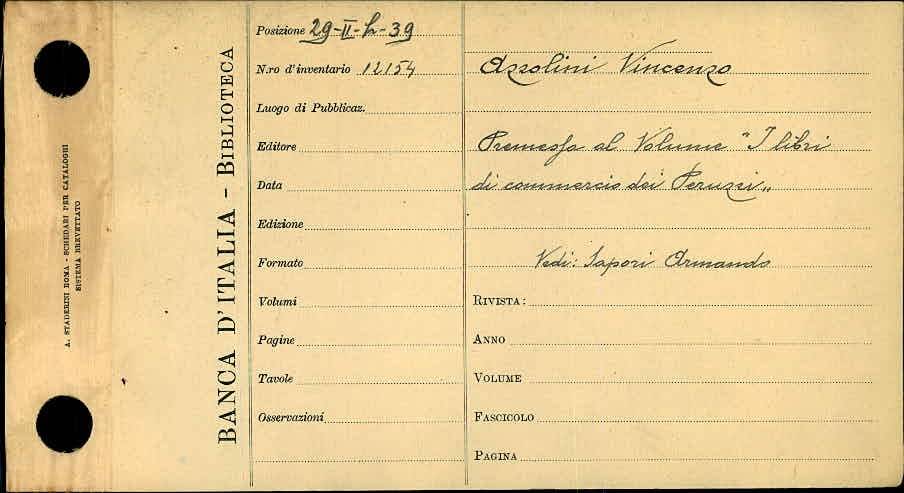 A. STADERINI ROMA - SCHEDARI PER CATALOGHI
SISTEMA BREVETTATO
BANCA D'ITALIA - BIBLIOTECA
Posizione 29-II-h-39
N.ro d'inventario 12154
Luogo di Pubblicaz.
Editore
Data
Edizione
Formato
Volumi
Pagine
Tavole
Osservazioni
Azzolini Vincenzo
Premessa al Volume " I libri
di commercio dei Peruzzi „
Vedi: Sapori Armando
RIVISTA:
ANNO
VOLUME
FASCICOLO
PAGINA